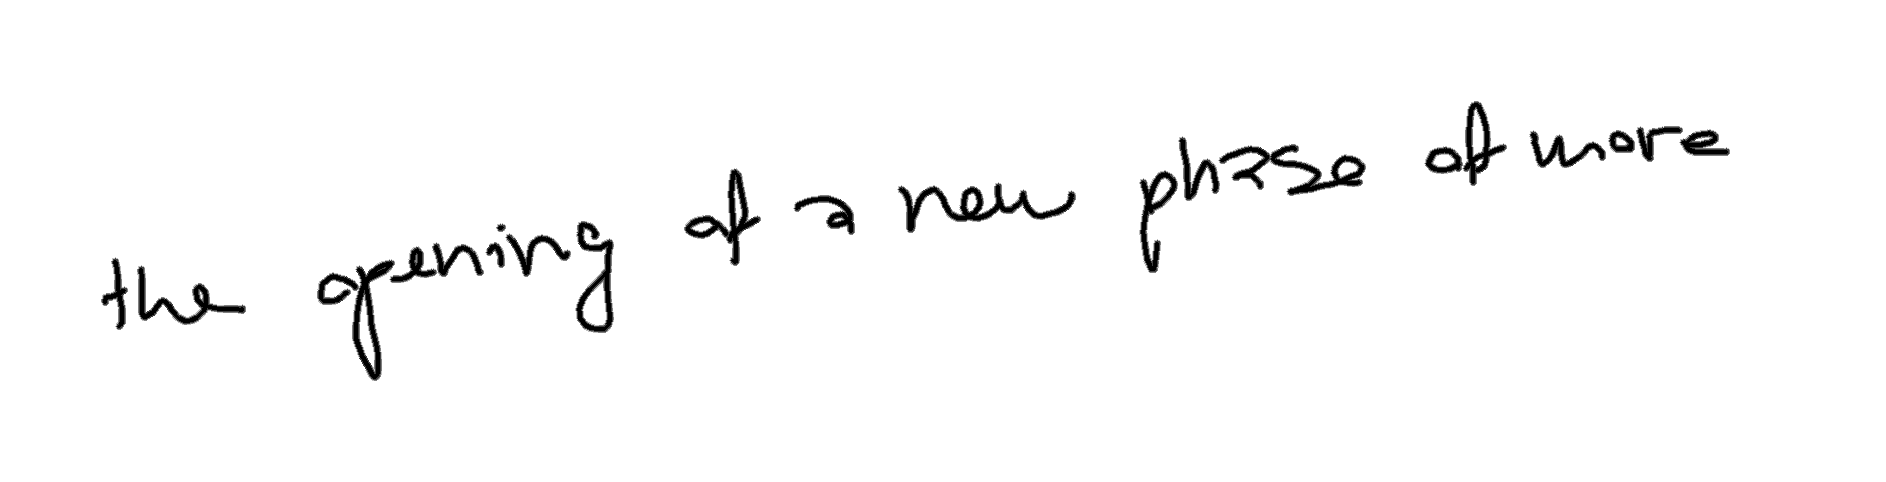 the opening of a new phase of more